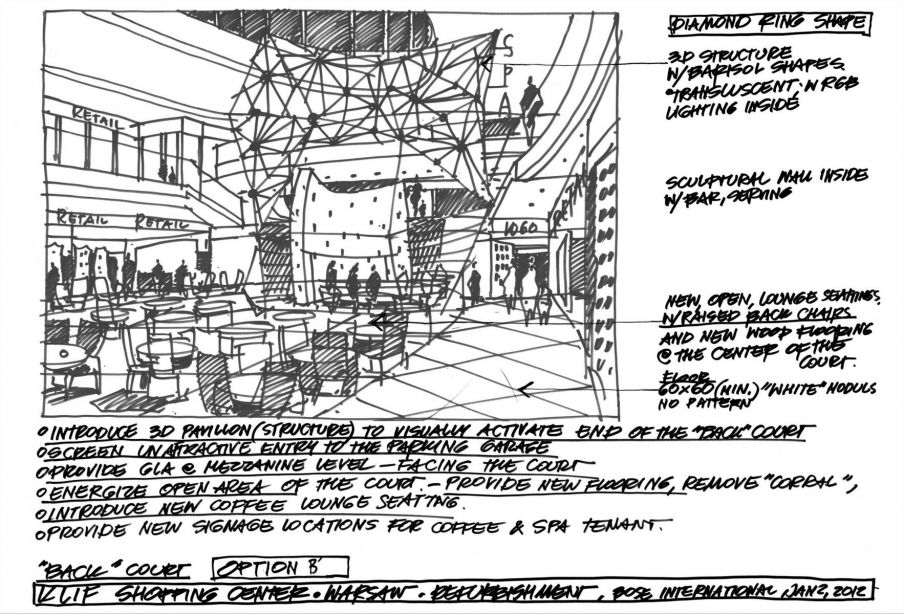 DIAMOND RING SHAPE
3D STRUCTURE
W/BARISOL SHAPES
TRANSLUSCENT W RGB
LIGHTING INSIDE
S
P
A
RETAIL
SCULPTURAL WALL INSIDE
W/ BAR, SERVING
RETAIL RETAIL
RETAIL
LOGO
NEW, OPEN, LOUNGE SEATINGS,
W/RAISED BACK CHAIRS
AND NEW WOOD FLOORING
@ THE CENTER OF THE
COURT.
FLOOR
60x60 (MIN.) "WHITE" MODULS
NO PATTERN
o INTRODUCE 3D PAVILION (STRUCTURE) TO VISUALLY ACTIVATE END OF THE "BACK" COURT
o SCREEN UNATRACTIVE ENTRY TO THE PARKING GARAGE
o PROVIDE GLA @ MEZZANINE LEVEL - FACING THE COURT
o ENERGIZE OPEN AREA OF THE COURT. - PROVIDE NEW FLOORING, REMOVE "CORRAL",
o INTRODUCE NEW COFFEE LOUNGE SEATING.
o PROVIDE NEW SIGNAGE LOCATIONS FOR COFFEE & SPA TENANT.
"BACK" COURT OPTION B'
KLIF SHOPPING CENTER • WARSAW • REFURBISHMENT, BOSE INTERNATIONAL, JAN 2, 2012